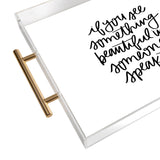 if you see
something
beautiful
someone
speak